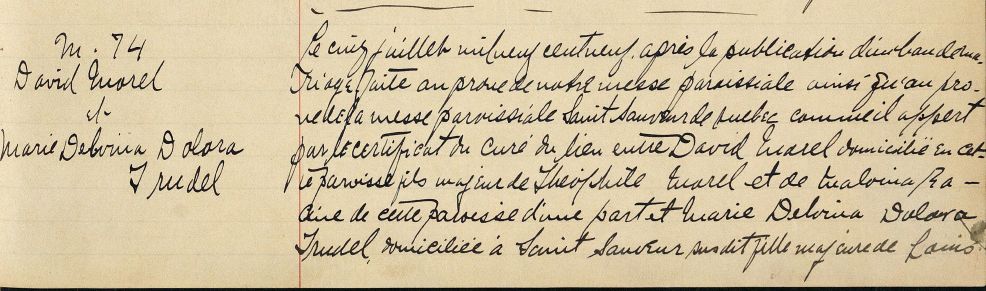 M. 74
David Morel
et
Marie Delvina Dolora
Trudel
Le cinq juillet mil neuf cent neuf, après la publication d'un ban de ma-
riage faite au prone de notre messe paroissiale ainsi qu'au pro-
ne de la messe paroissiale Saint Sauveur de Quebec comme il appert
par le certificat du curé du lieu entre David Morel domicilié en cet-
te paroisse fils majeur de Théophile Morel et de Malvina Ra-
cine de cette paroisse d'une part et Marie Delvina Dolora
Trudel, domiciliée à Saint Sauveur susdit fille majeure de Louis